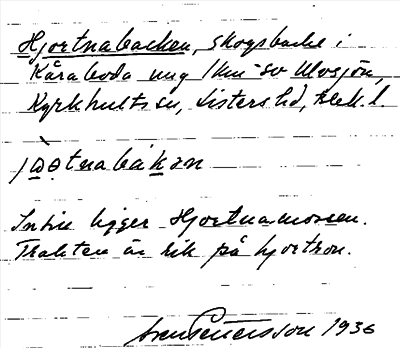 Hjortnabacken, skogsbacke i
Kåraboda ung 1 km SV Ulvsjön,
Kyrkhults sn, Listers hd, Blek. l.
jὰǫtnabákan
Intill ligger Hjortnamossen.
Trakten är rik på hjortron.
Sven Petersson 1936